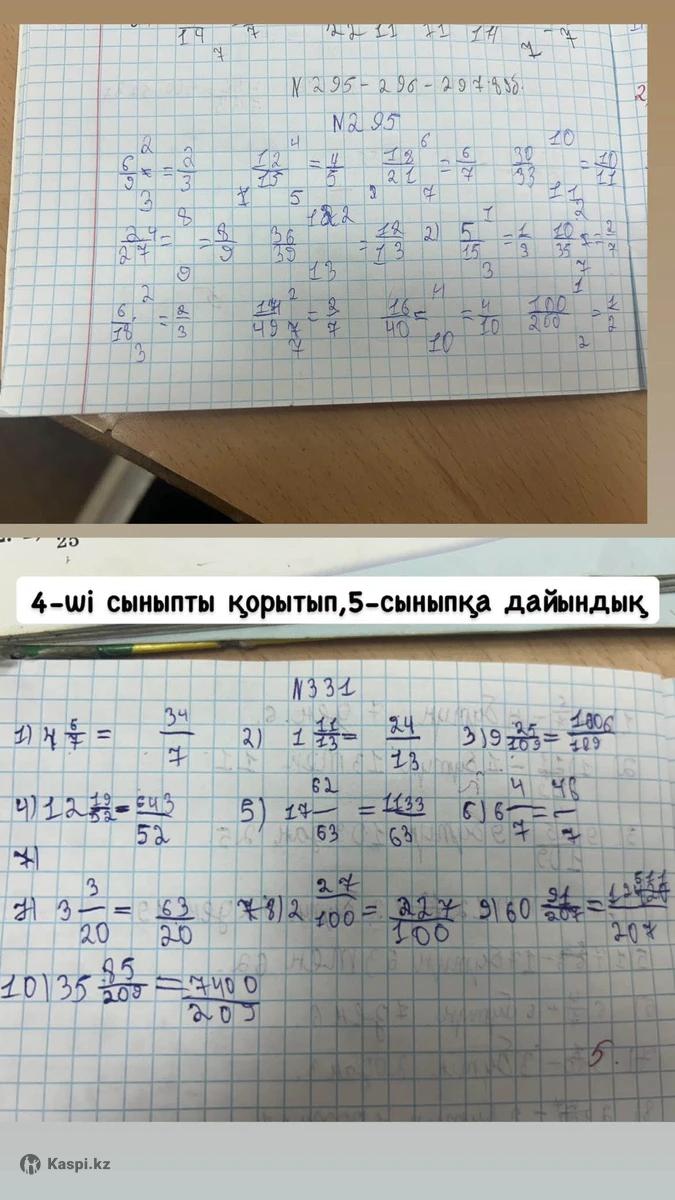 14 7 22 11 71 14 7 - 7
7
N 295 - 296 - 297.
2
N295
6/9 = 2/3 12/15 = 4/5 18/21 = 6/7 30/33 = 10/11
24/27 = 8/9 36/39 = 12/13 2) 5/15 = 1/3 10/35 = 2/7
6/18 = 2/3 14/49 = 2/7 16/40 = 4/10 100/200 = 1/2
25
4-wi сыныпты қорытып,5-сыныпқа дайындық
N331
1) 4 6/7 = 34/7 2) 1 11/13 = 24/13 3) 9 25/109 = 1006/109
4) 12 19/52 = 643/52 5) 17 62/63 = 1133/63 6) 6 4/7 = 46/7
7)
7) 3 3/20 = 63/20 8) 2 27/100 = 227/100 9) 60 91/207 = 12511/207
10) 35 85/209 = 7400/209
5.
Kaspi.kz